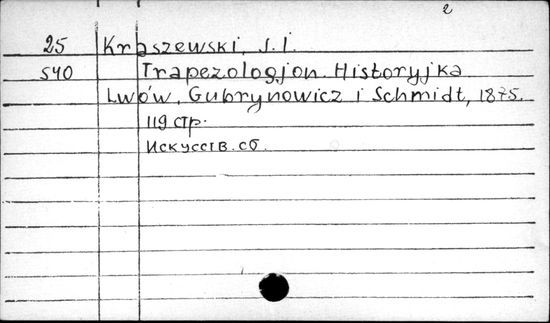 2
25 Kraszewski, J. I.
540 Trapezologjon. Historyjka
Lwów, Gubrynowicz i Schmidt, 1875.
119 стр.
Искусств. сб.